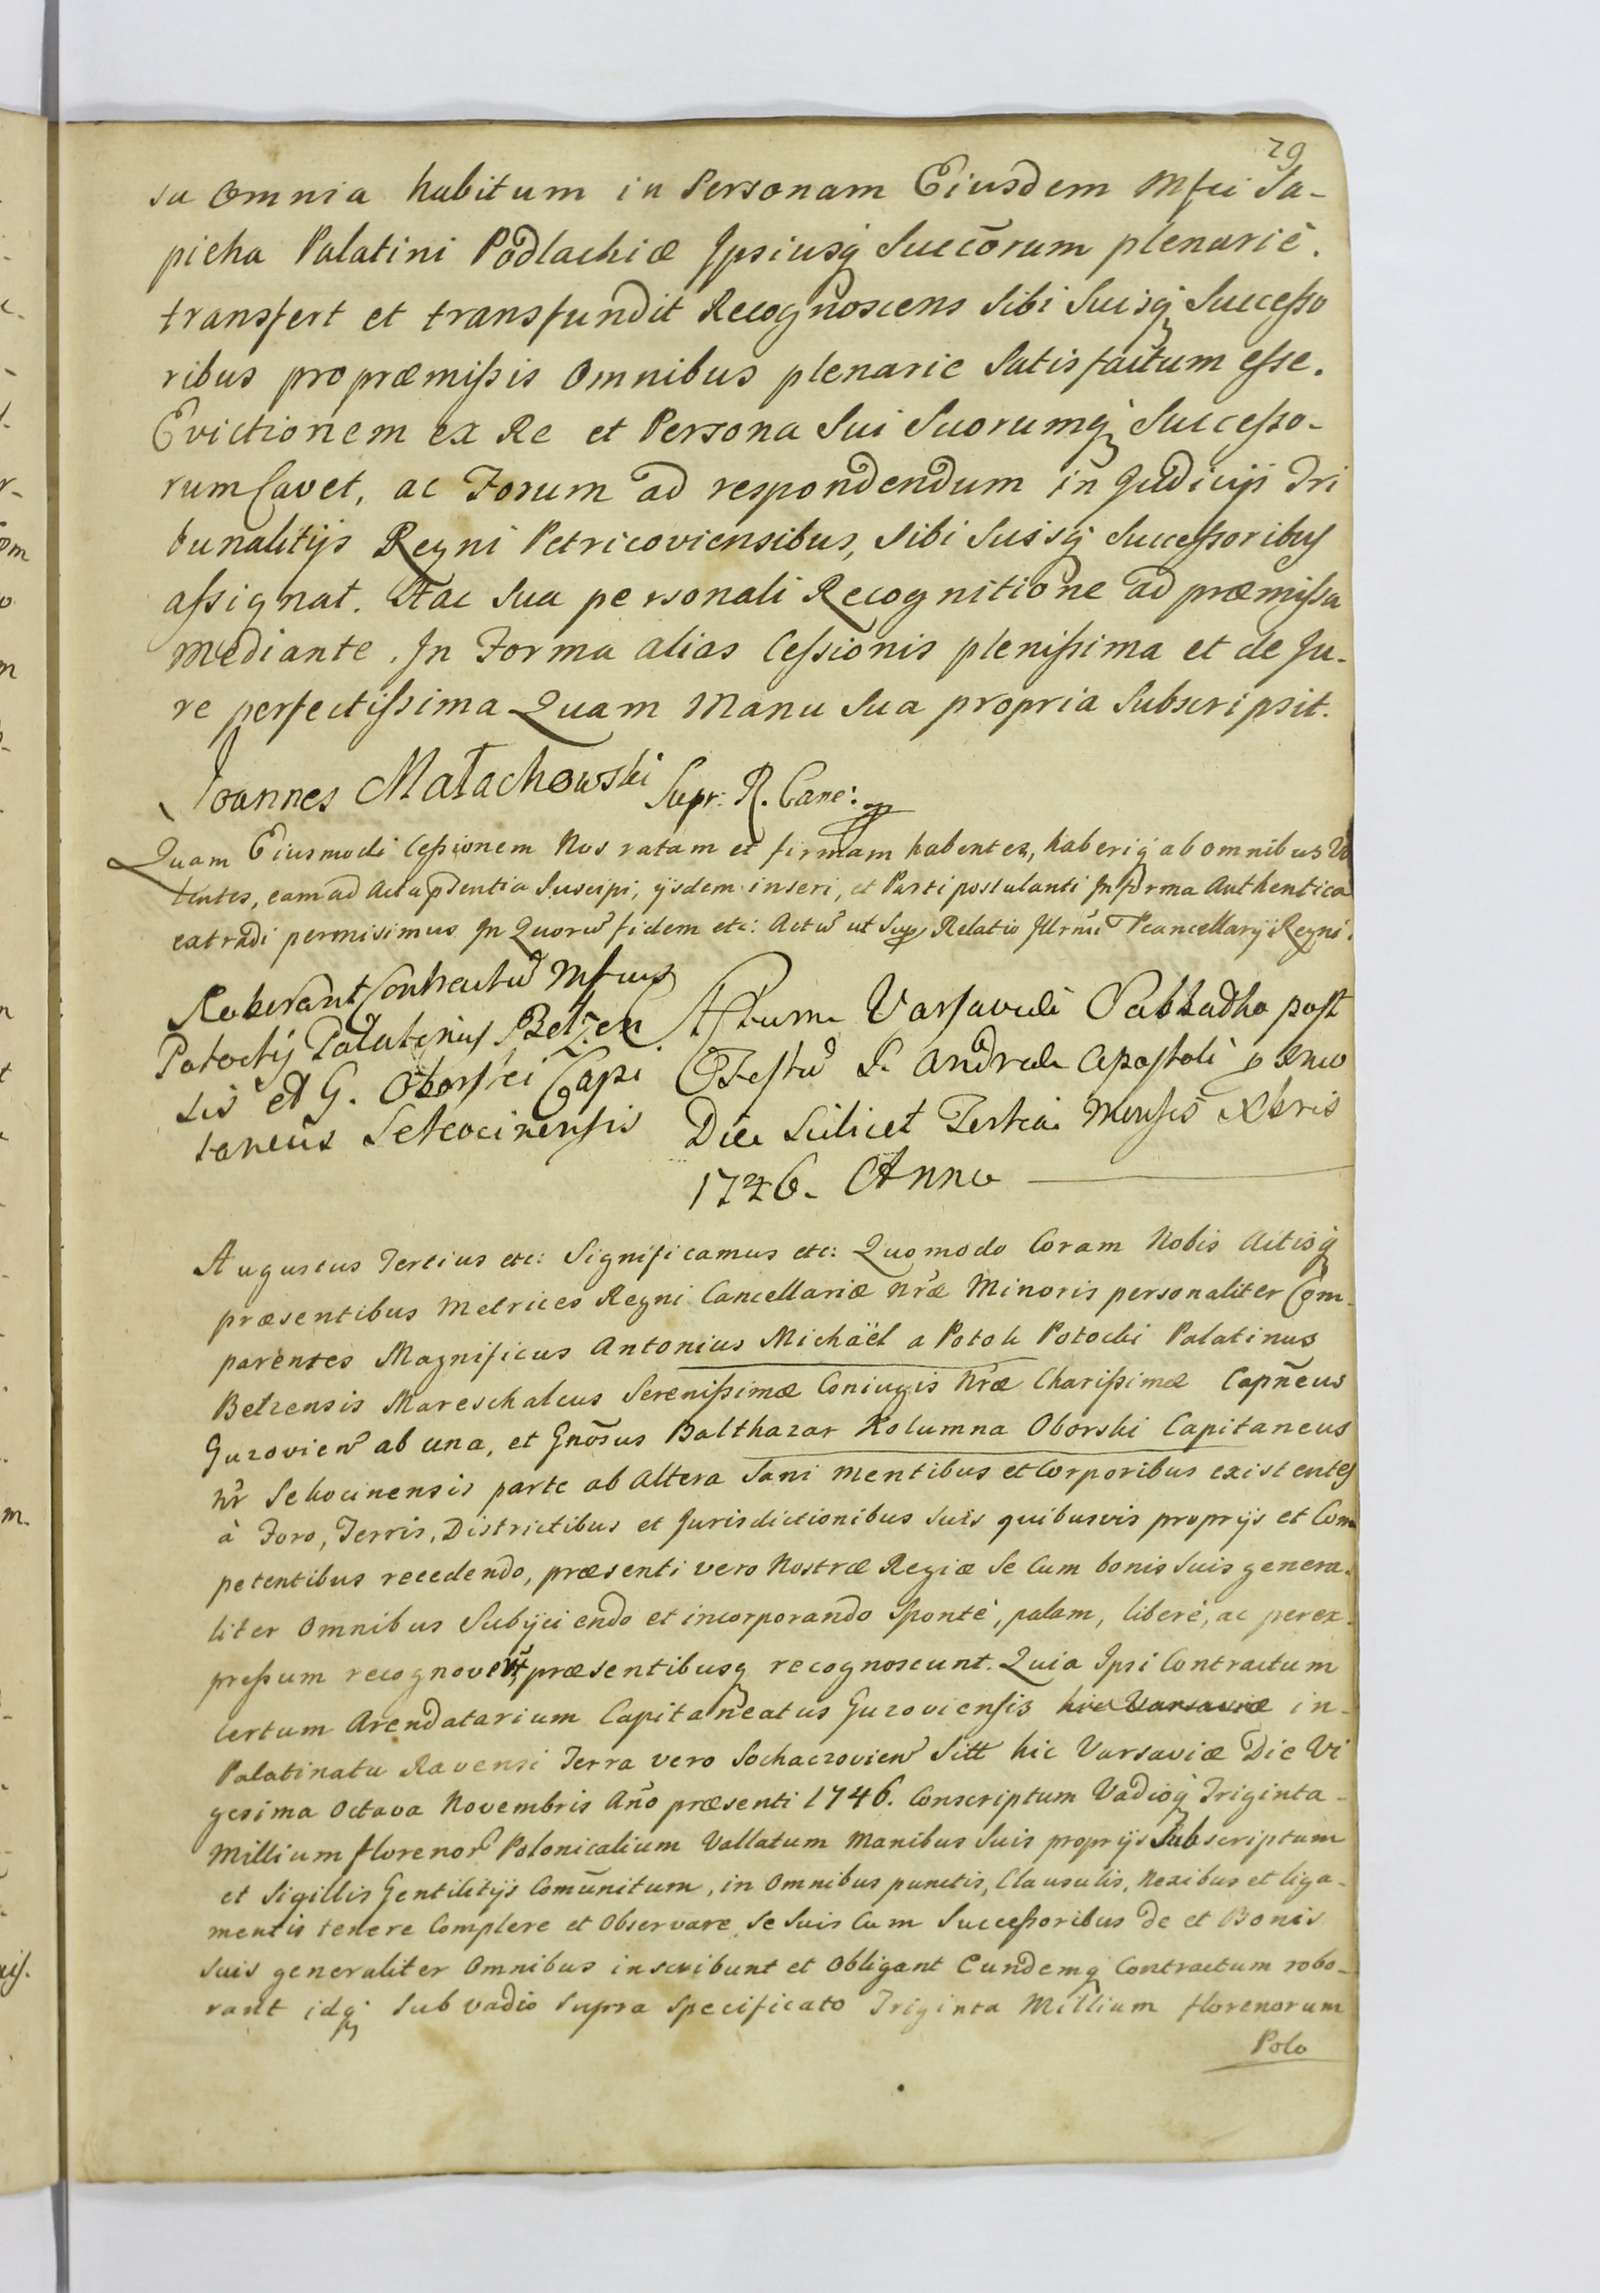 29
su Omnia habitum in Personam Eiusdem Mfci Sa-
pieha Palatini Podlachiæ Ipsiusq Succõrum plenariè.
transfert et transfundit Recognoscens Sibi Suisq Successo
ribus pro præmissis Omnibus plenarie Satisfactum esse.
Evictionem ex Re et Persona Sui Suorumq Successo-
rum Cavet, ac Forum ad respondendum in Judicijs Tri
bunalitijs Regni Petricoviensibus, Sibi Suisq Successoribus
assignat. Hac Sua personali Recognitione ad præmissa
mediante. In Forma alias Cessionis plenissima et de Ju-
re perfectissima Quam Manu Sua propria Subscripsit.
Joannes Małachowski Supr: R. Canc:
Quam Eiusmodi Cessionem Nos ratam et firmam habentes, haberiq ab omnibus Vo
lentes, eam ad Acta pñtentia Suscipi, ijsdem inseri, et Parti postulanti In forma Authentica
extradi permisimus In Quorũ fidem etc: Actũ ut Supr Relatio Illrmi Pcancellarij Regni.
Roborant Contractũ Mfcus
Potocky Palatinus Belzen
sis et G. Oborski Capi
taneus Sekocinensis
Actum Varsaviæ Sabbatho post
Festũ S. Andreæ Apostoli pmo
Die Scilicet Tertia Mensis Xbris
1746. Anno
Augustus Tertius etc: Significamus etc: Quomodo Coram Nobis Actisq
præsentibus Metrices Regni Cancellariæ nr̃æ Minoris personaliter Com-
parentes Magnificus Antonius Michaël a Potok Potocki Palatinus
Belzensis Mareschalcus Serenissimæ Coniugis Nr̃æ Charissimæ Capñeus
Guzovien̄ ab una, et Gñosus Balthazar Kolumna Oborski Capitaneus
nr̃ Sekocinensis parte ab Altera Sani mentibus et Corporibus existentes
à Foro, Terris, Districtibus et Jurisdictionibus Suis quibusvis proprijs et Com
petentibus recedendo, præsenti vero Nostræ Regiæ Se Cum bonis Suis genera-
liter Omnibus Subijciendo et incorporando Sponté, palam, liberè, ac per ex-
pressum recognoverũt præsentibusq recognoscunt. Quia Ipsi Contractum
certum Arendatarium Capitaneatus Guzoviensis hic Varsaviæ in-
Palatinatu Ravensi Terra vero Sochaczovien̄ Sitt hic Varsaviæ Die Vi
gesima Octava Novembris Año præsenti 1746. Conscriptum Vadioq Triginta-
Millium florenor̃ Polonicalium Vallatum Manibus Suis proprijs Subscriptum
et Sigillis Gentilitijs Comũnitum, in Omnibus punctis, Clausulis, Nexibus et liga-
mentis tenere Complere et Observare, Se Suis Cum Successoribus de et Bonis
Suis generaliter Omnibus inscribunt et Obligant Eundemq Contractum robo-
rant idq Sub vadio Supra Specificato Triginta Millium florenorum
Polo